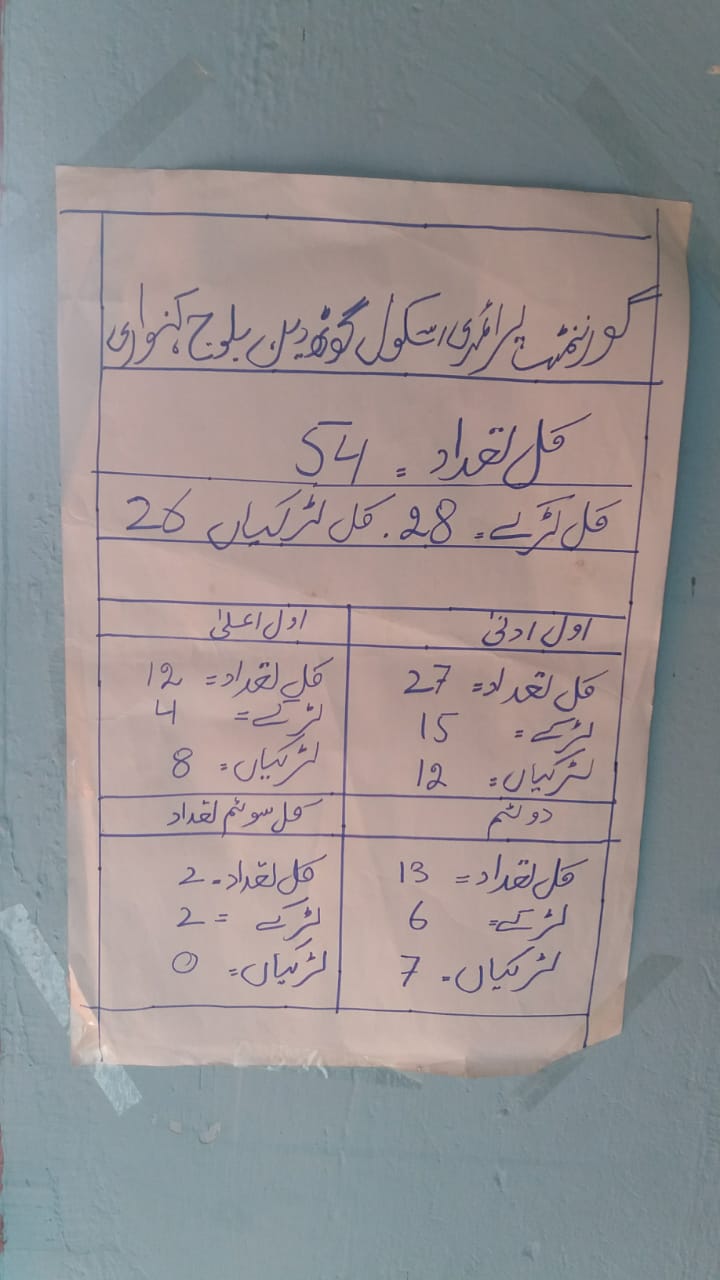 گورنمنٹ پرائمری اسکول گوٹھ دین بلوچ کنواری
کل تعداد = 54
کل لڑکے = 28. کل لڑکیاں 26
اول ادنیٰ
کل تعداد = 27
لڑکے = 15
لڑکیاں = 12
اول اعلیٰ
کل تعداد = 12
لڑکے = 4
لڑکیاں = 8
دوئم
کل تعداد = 13
لڑکے = 6
لڑکیاں - 7
کل سوئم تعداد
کل تعداد - 2
لڑکے = 2
لڑکیاں = 0